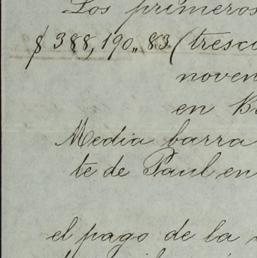 Los primeros
$ 388,190,,83 (tresci
noven
en B
Media barra
te de Paul en
el pago de la